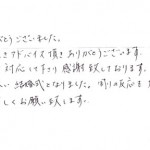 がとうございました。
きアドバイス頂きありがとうございます。
対応して下さり感謝致しております。
い結婚式となりました。周りの反応も
しくお願い致します。